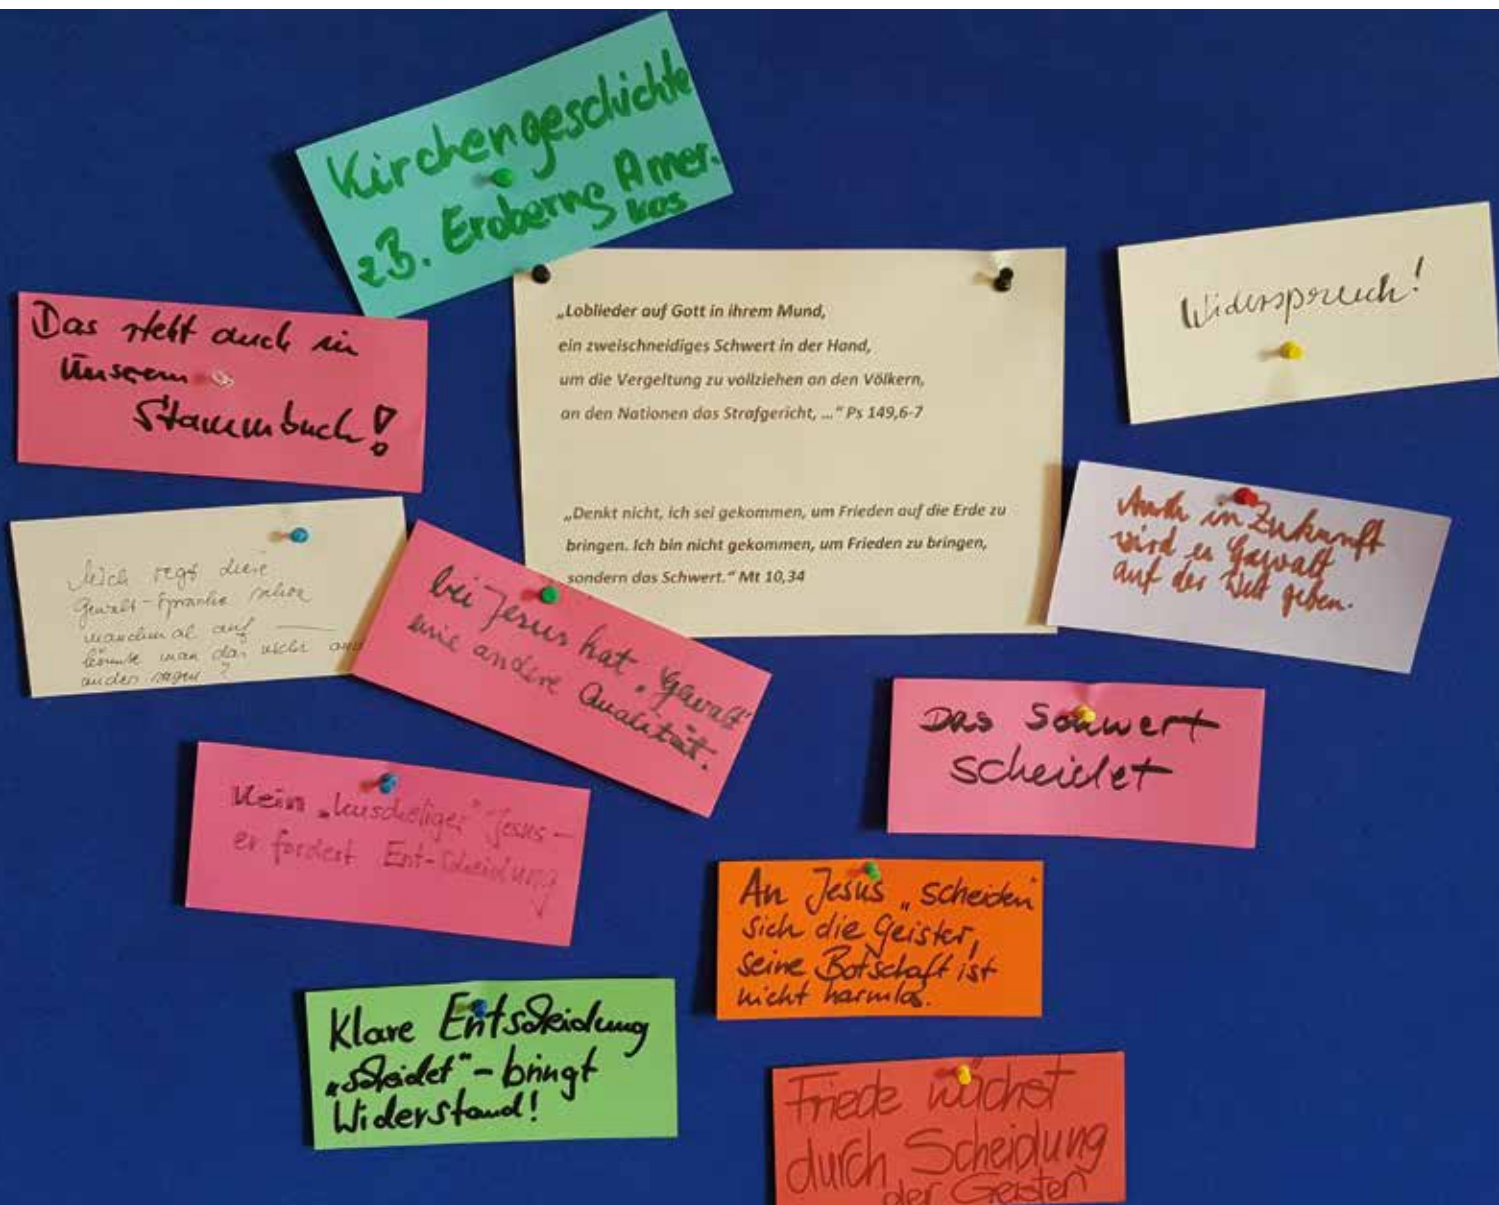 Kirchengeschichte
z.B. Eroberng Amer.
kas
„Loblieder auf Gott in ihrem Mund,
ein zweischneidiges Schwert in der Hand,
um die Vergeltung zu vollziehen an den Völkern,
an den Nationen das Strafgericht, ...“ Ps 149,6-7
„Denkt nicht, ich sei gekommen, um Frieden auf die Erde zu
bringen. Ich bin nicht gekommen, um Frieden zu bringen,
sondern das Schwert.“ Mt 10,34
Widerspruch!
Das steht auch in
Unserem
Stammbuch!
Mich regt diese
Gewalt-Sprache schon
manchmal auf —
könnte man das nicht
anders sagen?
bei Jesus hat „Gewalt“
eine andere Qualität.
Auch in Zukunft
wird es Gewalt
auf der Welt geben.
Das Schwert
scheidet
Kein „kuscheliger“ Jesus –
er fordert Ent-Scheidung
An Jesus „scheiden
sich die Geister,
seine Botschaft ist
nicht harmlos.
Klare Entscheidung
„scheidet“ – bringt
Widerstand!
Friede wächst
durch Scheidung
der Geister